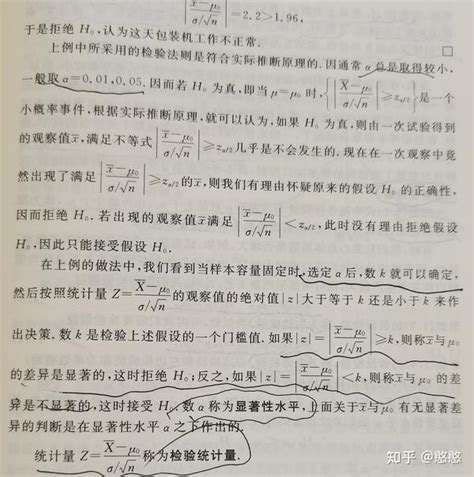 |x̄−μ₀ / σ/√n| = 2.2 > 1.96,
于是拒绝 H₀,认为这天包装机工作不正常. □
上例中所采用的检验法则是符合实际推断原理的.因通常 α 总是取得较小,
一般取 α=0.01,0.05.因而若 H₀ 为真,即当 μ=μ₀ 时,{|X̄−μ₀ / σ/√n| ≥ z_{α/2}}是一个
小概率事件,根据实际推断原理,就可以认为,如果 H₀ 为真,则由一次试验得到
的观察值x̄,满足不等式|x̄−μ₀ / σ/√n| ≥ z_{α/2}几乎是不会发生的.现在在一次观察中竟
然出现了满足|x̄−μ₀ / σ/√n| ≥ z_{α/2}的x̄,则我们有理由怀疑原来的假设 H₀ 的正确性,
因而拒绝 H₀.若出现的观察值x̄满足|x̄−μ₀ / σ/√n| < z_{α/2},此时没有理由拒绝假设
H₀,因此只能接受假设 H₀.
在上例的做法中,我们看到当样本容量固定时,选定 α 后,数 k 就可以确定,
然后按照统计量 Z=X̄−μ₀ / σ/√n的观察值的绝对值|z|大于等于 k 还是小于 k 来作
出决策.数 k 是检验上述假设的一个门槛值.如果|z|=|x̄−μ₀ / σ/√n| ≥ k,则称x̄与 μ₀
的差异是显著的,这时拒绝 H₀;反之,如果|z|=|x̄−μ₀ / σ/√n| < k,则称x̄与 μ₀ 的差
异是不显著的,这时接受 H₀.数 α 称为显著性水平,上面关于x̄与 μ₀ 有无显著差
异的判断是在显著性水平 α 之下作出的.
统计量 Z=X̄−μ₀ / σ/√n称为检验统计量.
知乎 @憨憨